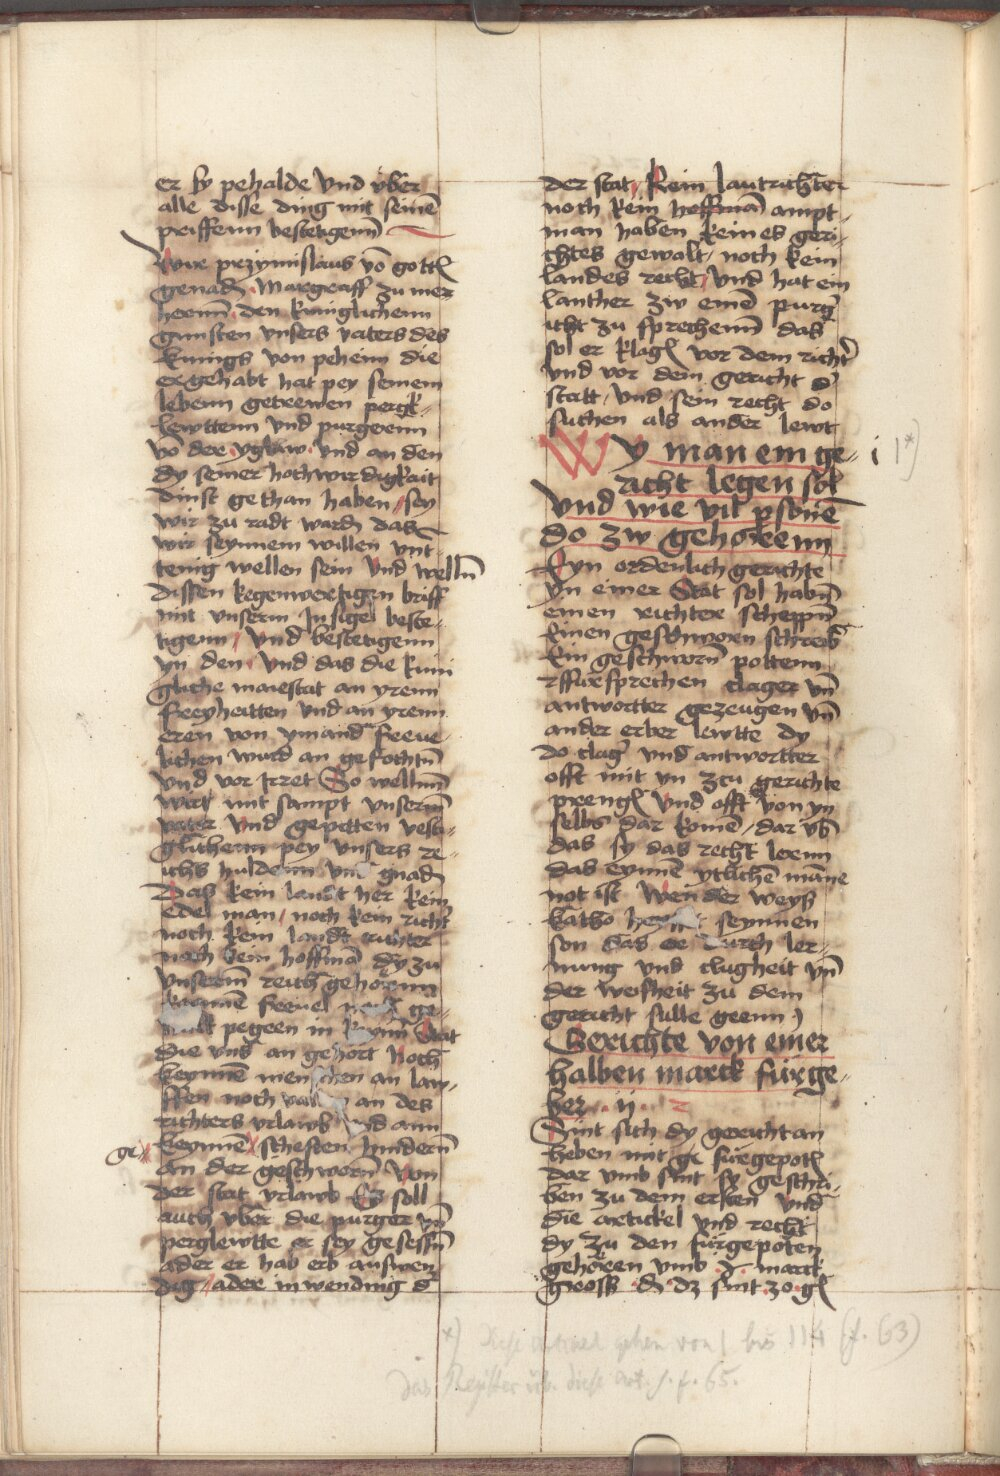 er sy pehalde Vnd vber
alle disse ding mit seinē
preiffenn bestetigenn
Wir przymislaus vō gottꝭ
genadn Margraff zu mer
herenn den kuniglichenn
gunsten vnsers vaters des
kunigs von peheim die
er gehabt hat pey seinem
lebenn getrewen pergk-
lewttenn vnd purgernn
vō der yglaw vnd an den
dy seiner hochwirdigkait
dinst gethan haben sey
wir zu radt wardn das
wir seynnem willen vnt-
tenig wellen sein Vnd wellnn
dissen kegenwertigen briff
mit vnserm Insigel beste-
tigenn / Vnd bestetigenn
yn den Vnd das die kuni
gliche maiestat an yrenn
freyheitten vnd an yrenn
eren von ymand freue-
lichen wurd an gefochtn
vnd vor Irret So wellnn
wir mit sampt vnserm
vater Vnd gepitten vesti-
glichenn pey vnsers re-
ichs huldenn vnd gnadn
Das kein landt her kein
edel man / noch kein richt
noch kein landt richter
noch kein hoffman dy zu
vnserm reich gehorenn
keinnen freuel ge-
pegeen in Stat
die vns an gehort Noch
keynnē menschen an law-
ffen noch an des
richters vrlawb vnd ann
ge-
keynnē scheften hindern
an der geschworn Von
der stat vrlawb Es soll
auch vber die purger vn̄
perglewtte er sey gesessn
ader er hab erb auswen
dig / ader inwendig d
der stat / Kein lantrichter
noch kein hoffman ampt-
man haben keines geri-
chtes gewalt / noch kein
landes recht / Vnd hat ein
lanther zw einē purg
icht zu sprechenn das
sol er klagꝭ vor dem richt
Vnd vor dem gericht d
statt / Vnd sein recht do
suchen als ander lewt
Wy man ein ge- i 1*)
richt legen sol
vnd wie vil psonē
do zw gehorenn
Eyn ordenlich gerichte
yn einer Stat sol habn
einen richter scheppn
Einen geschworn schreib
Ein geschworn poltenn
rffursprechen clager vn̄
antwortter gezeugen vn̄
ander erber lewtte dy
do clag vnd antwortter
offt mit yn zcu gerichte
prengꝭ Vnd offt von yn
selbs dar komē / dar vb
das sy das recht lernn
das eynnē ytlichē mane
not ist Wen der weyß
katho seynnen
son das er durch ler-
nung vnd clugheit vn̄
der weisheit zu dem
gericht sulle geenn
Gerichte von einer
halben marck fürge-
ber . ij .
Sint sich dy gericht an
heben mit ge fürgepotꝭ
dar vmb sint sy geschri-
ben zu dem ersten vnd
die artickel vnd recht
dy zu den fürgepoten
gehören vmb . marck
gross d dz sint 30 gꝭ
*) Diese artikel gehen von 1 bis 114 (f. 63)
Das Register üb. diese Art. s. f. 65.